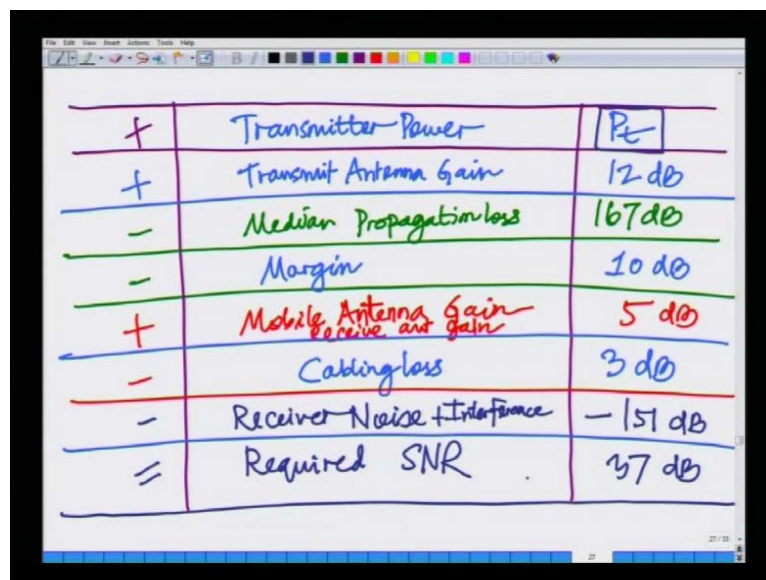 File Edit View Insert Actions Tools Help
+ Transmitter Power Pt
+ Transmit Antenna Gain 12 dB
- Median Propagation loss 167 dB
- Margin 10 dB
+ Mobile Antenna Gain 5 dB
receive ant gain
- Cabling loss 3 dB
- Receiver Noise + Interference - 151 dB
= Required SNR 37 dB
27/33
27